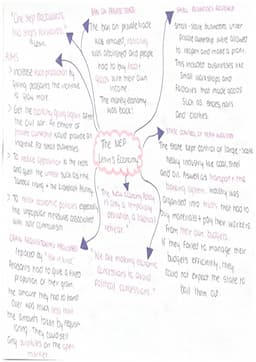 "One step backwards
two steps forwards"
- Lenin
AIMS
> Increase food production by
giving peasants the incentive
to grow more.
> Get the economy going again after
the civil war. An element of
private ownership would provide an
incentive for small businesses
> To reduce opposition to the regime
and quell the unrest such as the
Tambov rising + the Kronstadt Mutiny
> To relax economic policies especially
the unpopular measures associated
with war communism
GRAIN REQUISITIONING ABOLISHED
replaced by a 'tax in kind'
Peasants had to give a fixed
proportion of their grain.
The amount they had to hand
over was much less than
the amounts taken by requisi-
tioning. They could sell
any surpluses on the open
market
BAN ON PRIVATE TRADE
The ban on private trade
was removed, rationing
was abolished and people
had to buy food +
goods with their own
income.
The money economy
was back!
The NEP
Lenin's Economy
"The New Economic Policy
is only a temporary
deviation, a tactical
retreat."
"We are making economic
concessions to avoid
political concessions."
SMALL BUSINESSES REOPENED
Small-scale businesses under
private ownership were allowed
to reopen and make a profit.
This included businesses like
small workshops and
factories that made goods
such as shoes, nails
and clothes.
STATE CONTROL OF HEAVY INDUSTRY
The state kept control of large-scale
heavy industry like coal, steel
and oil. As well as transport + the
banking system. Industry was
organised into trusts that had to
buy materials + pay their workers
from their own budgets.
If they failed to manage their
budgets efficiently, they
could not expect the state to
bail them out.